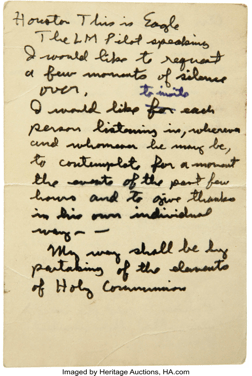 Houston This is Eagle
The LM Pilot speaking
I would like to request
a few moments of silence
over.
to invite
I would like for each
person listening in, wherever
and whomever he may be,
to contemplate for a moment
the events of the past few
hours and to give thanks
in his own individual
way - -
My way shall be by
partaking of the elements
of Holy Communion
Imaged by Heritage Auctions, HA.com